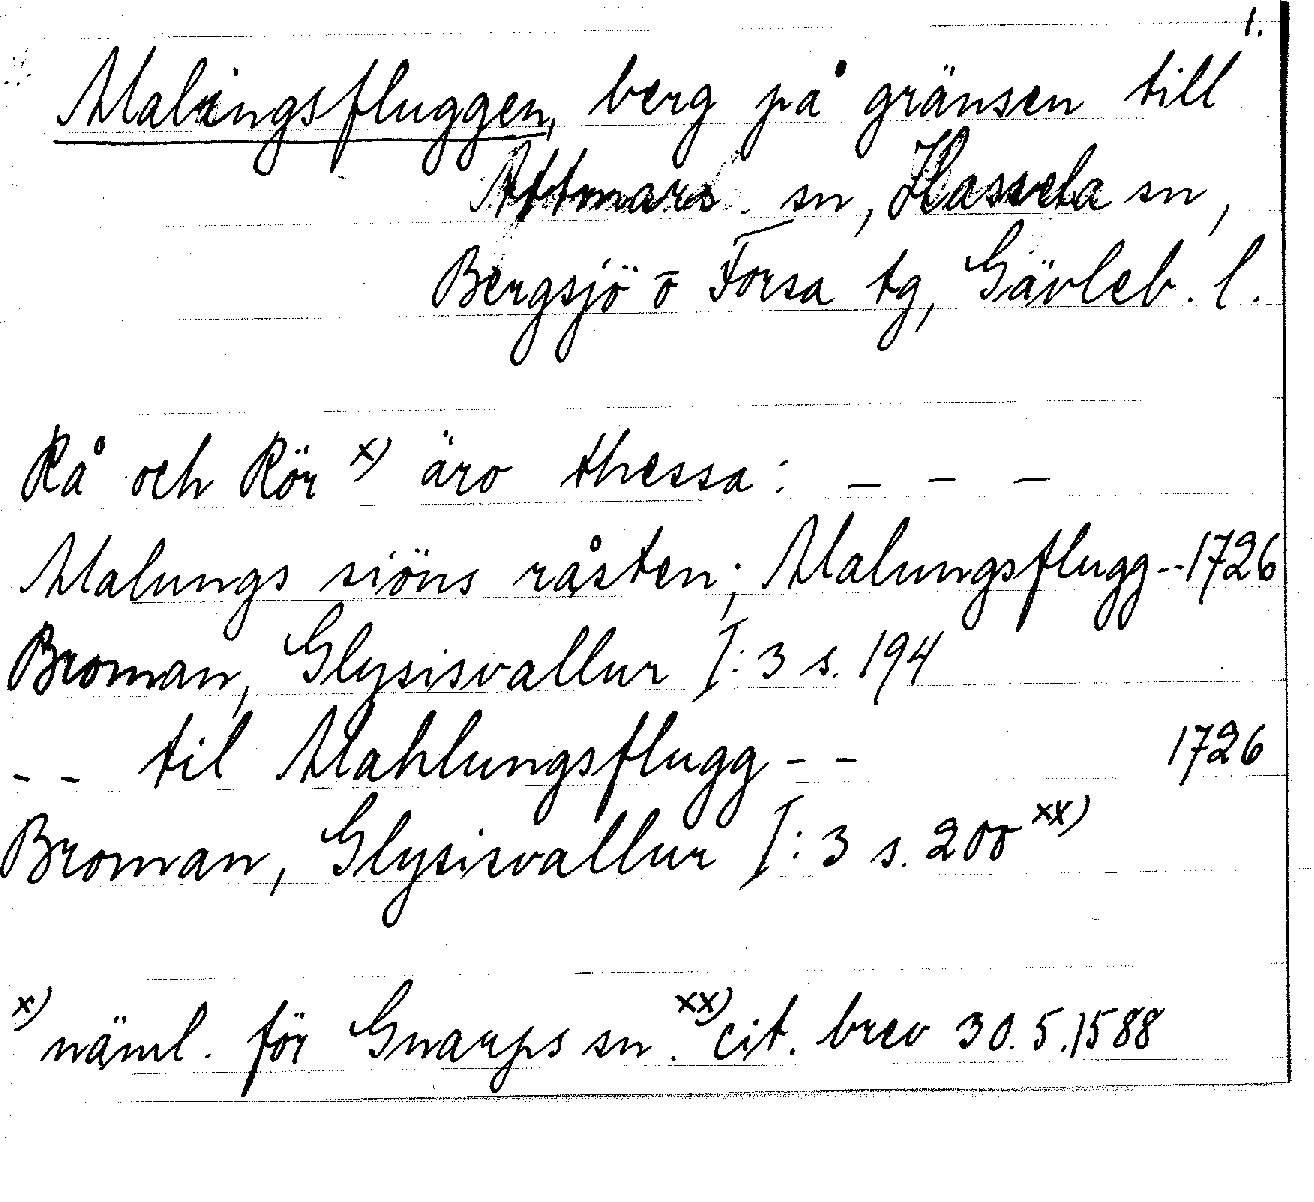 1.
Malingsfluggen, berg på gränsen till
Attmars sn, Hassela sn,
Bergsjö o Forsa tg, Gävleb. l.
Rå och Rör x) äro thessa: – – –
Malungs siöns råsten; Malungsflugg -- 1726
Broman, Glysisvallur I: 3 s. 194
- - til Mahlungsflugg - - 1726
Broman, Glysisvallur I: 3 s. 200 xx)
x) näml. för Gnarps sn. xx) cit. brev 30.5.1588